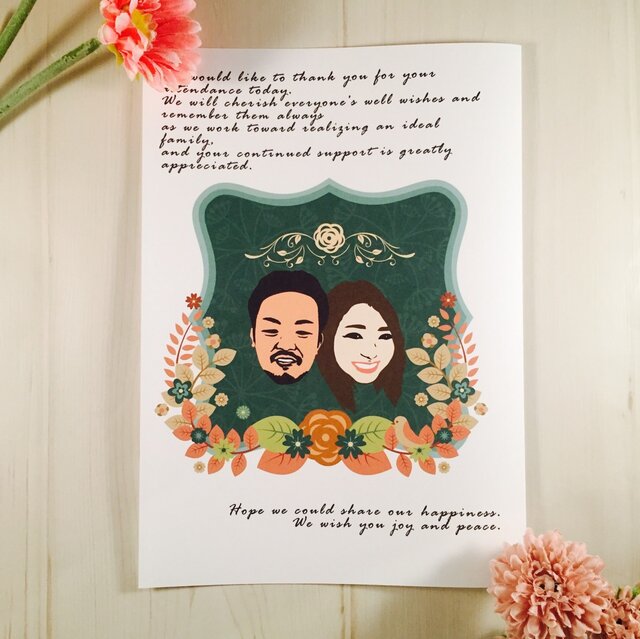 would like to thank you for your
attendance today.
We will cherish everyone's well wishes and
remember them always
as we work toward realizing an ideal
family,
and your continued support is greatly
appreciated.
Hope we could share our happiness.
We wish you joy and peace.